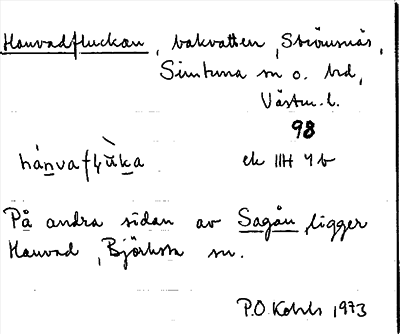 Hanvadfluckan, bakvatten, Strömsnäs,
Simtuna sn o. hd,
Västm.l.
98
hánvafḷùka ek IIH 4b
På andra sidan av Sagån ligger
Hanvad, Björksta sn.
P.O. 1973